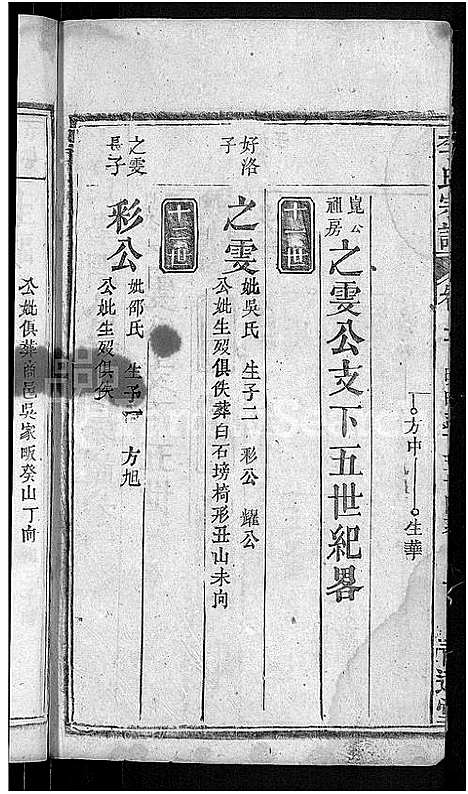 李氏宗譜
方中
生華
崑公祖房
之雯公支下五世紀畧
十二世
好洛子
之雯
妣吳氏 生子二 彩公 耀公
公妣生歿俱佚葬白石塝椅形丑山未向
十三世
之雯長子
彩公
妣邵氏 生子一 方旭
公妣生歿俱佚
公妣俱葬商邑吳家畈癸山丁向